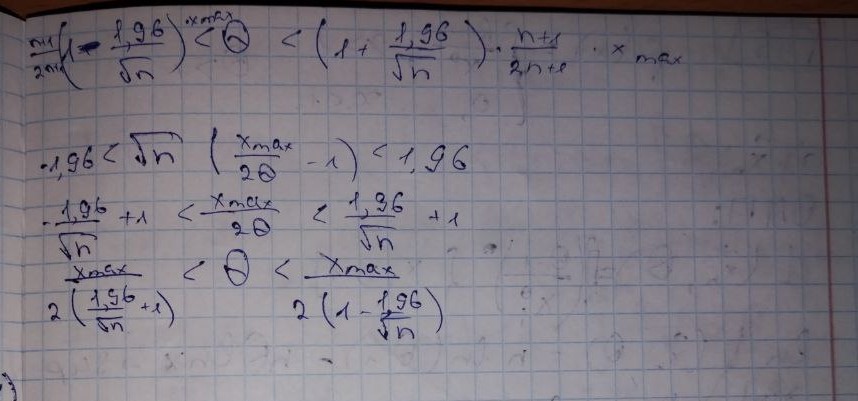 n+1/2n+1 (1 - 1,96/√n) · xmax < Θ < (1 + 1,96/√n) · n+1/2n+1 · x max
-1,96 < √n (xmax/2Θ - 1) < 1,96
-1,96/√n + 1 < xmax/2Θ < 1,96/√n + 1
xmax/2(1,96/√n + 1) < Θ < xmax/2(1 - 1,96/√n)